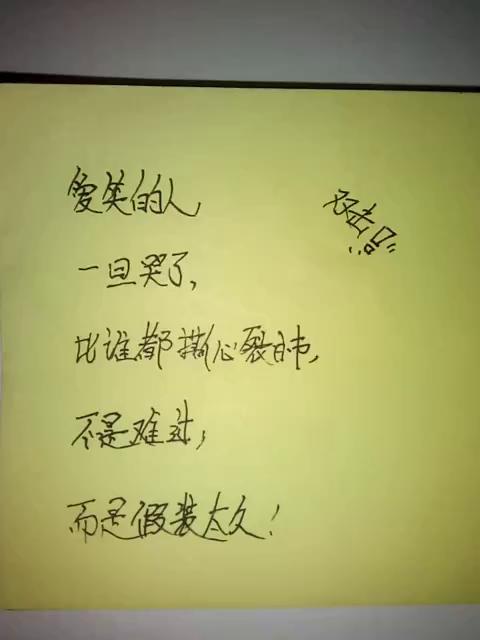 爱笑的人,
一旦哭了,
比谁都撕心裂肺,
不是难过,
而是假装太久!